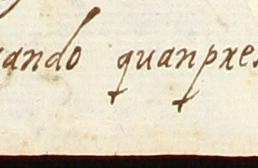 ando quanpres